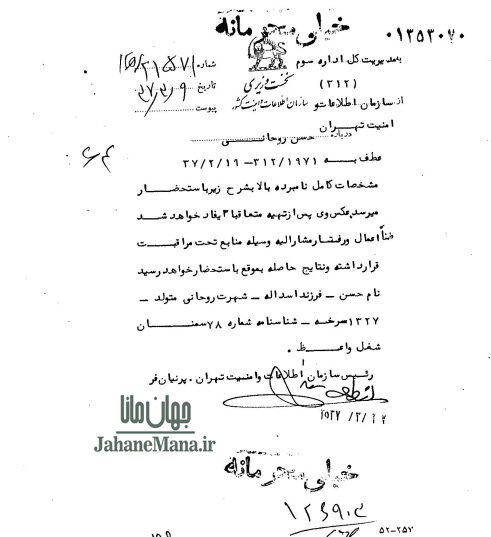 خیلی محرمانه
۰۱۳۵۳۰۷۰
بمدیریت کل اداره سوم
(۳۱۲)
نخست وزیری
سازمان اطلاعات و امنیت کشور
از سازمان اطلاعات و
امنیت تهران
شماره
تاریخ
پیوست
درباره حسن روحانی
عطف به ۳۱۲/۱۹۷۱-۳۷/۲/۱۹
مشخصات کامل نامبرده بالا بشرح زیر باستحضار
میرسد عکس وی پس از تهیه متعاقبا ایفاد خواهد شد
ضمنا اعمال و رفتار مشارالیه وسیله منابع تحت مراقبت
قرار داشته و نتایج حاصله بموقع باستحضار خواهد رسید
نام حسن - فرزند اسداله - شهرت روحانی متولد -
۱۳۲۷ سرخه - شناسنامه شماره ۷۸ سمنان
شغل واعظ .
رئیس سازمان اطلاعات و امنیت تهران . پرنیان فر
۲۵۳۷/۳/۱۲
جهان مانا
JahaneMana.ir
خیلی محرمانه
۵۲-۲۵۷